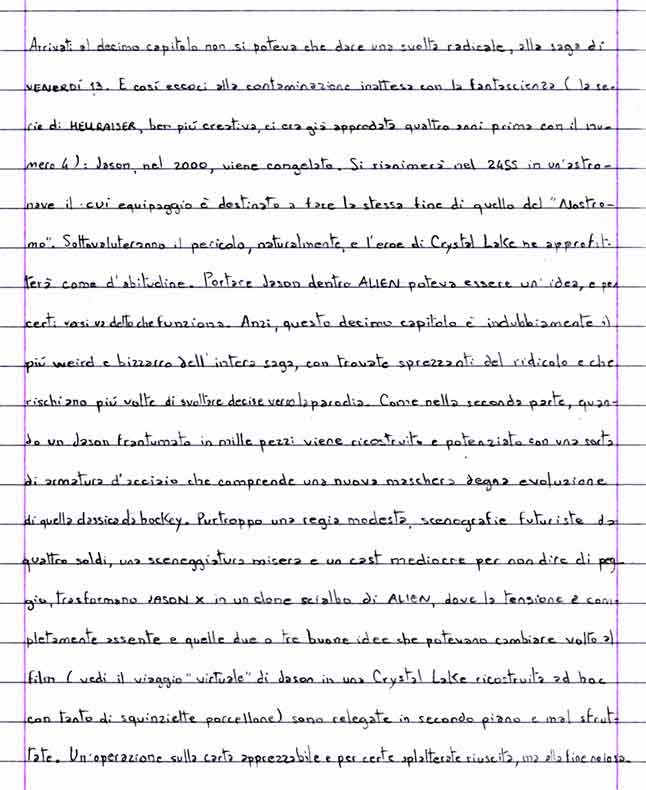 Arrivati al decimo capitolo non si poteva che dare una svolta radicale, alla saga di
VENERDÍ 13. E cosí eccoci alla contaminazione inattesa con la fantascienza (la se-
rie di HELLRAISER, ben piú creativa, ci era giá approdata quattro anni prima con il nu-
mero 4): Jason, nel 2000, viene congelato. Si rianimerá nel 2455 in un'astro-
nave il cui equipaggio é destinato a fare la stessa fine di quello del "Nostro-
mo". Sottovaluteranno il pericolo, naturalmente, e l'eroe di Crystal Lake ne approfit-
terá come d'abitudine. Portare Jason dentro ALIEN poteva essere un'idea, e per
certi versi va detto che funziona. Anzi, questo decimo capitolo é indubbiamente il
piú weird e bizzarro dell'intera saga, con trovate sprezzanti del ridicolo e che
rischiano piú volte di svoltare decise verso la parodia. Come nella seconda parte, quan-
do un Jason frantumato in mille pezzi viene ricostruito e potenziato con una sorta
di armatura d'acciaio che comprende una nuova maschera degna evoluzione
di quella classica da hockey. Purtroppo una regia modesta, scenografie futuriste da
quattro soldi, una sceneggiatura misera e un cast mediocre per non dire di peg-
gio, trasformano JASON X in un clone scialbo di ALIEN, dove la tensione é com-
pletamente assente e quelle due o tre buone idee che potevano cambiare volto al
film (vedi il viaggio "virtuale" di Jason in una Crystal Lake ricostruita ad hoc
con tanto di squinziette porcellone) sono relegate in secondo piano e mal sfrut-
tate. Un'operazione sulla carta apprezzabile e per certe splatterate riuscita, ma alla fine noiosa.